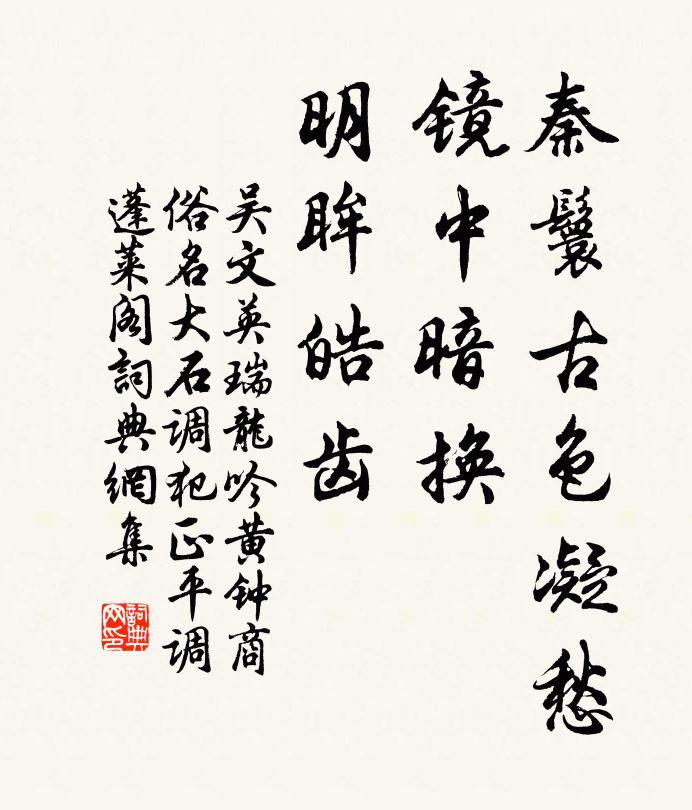 秦鬟古色凝愁
镜中暗换
明眸皓齿
吴文英瑞龍吟黄钟商
俗名大石调犯正平调
蓬莱阁詞典網集
詞典网印